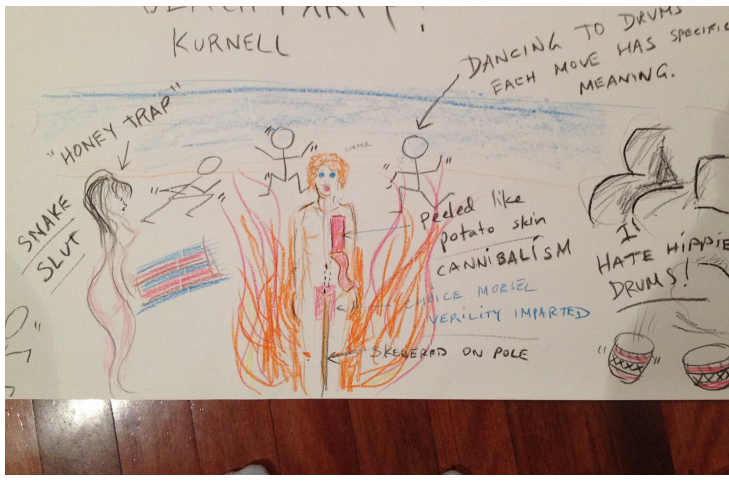 BEACH PARTY!
KURNELL
DANCING TO DRUMS
EACH MOVE HAS SPECIFIC
MEANING.
"HONEY TRAP"
SNAKE
SLUT
SURFER
Peeled like
potato skin
CANNIBALISM
CHOICE MORSEL
VERILITY IMPARTED
SKEWERED ON POLE
I
HATE HIPPIE
DRUMS!